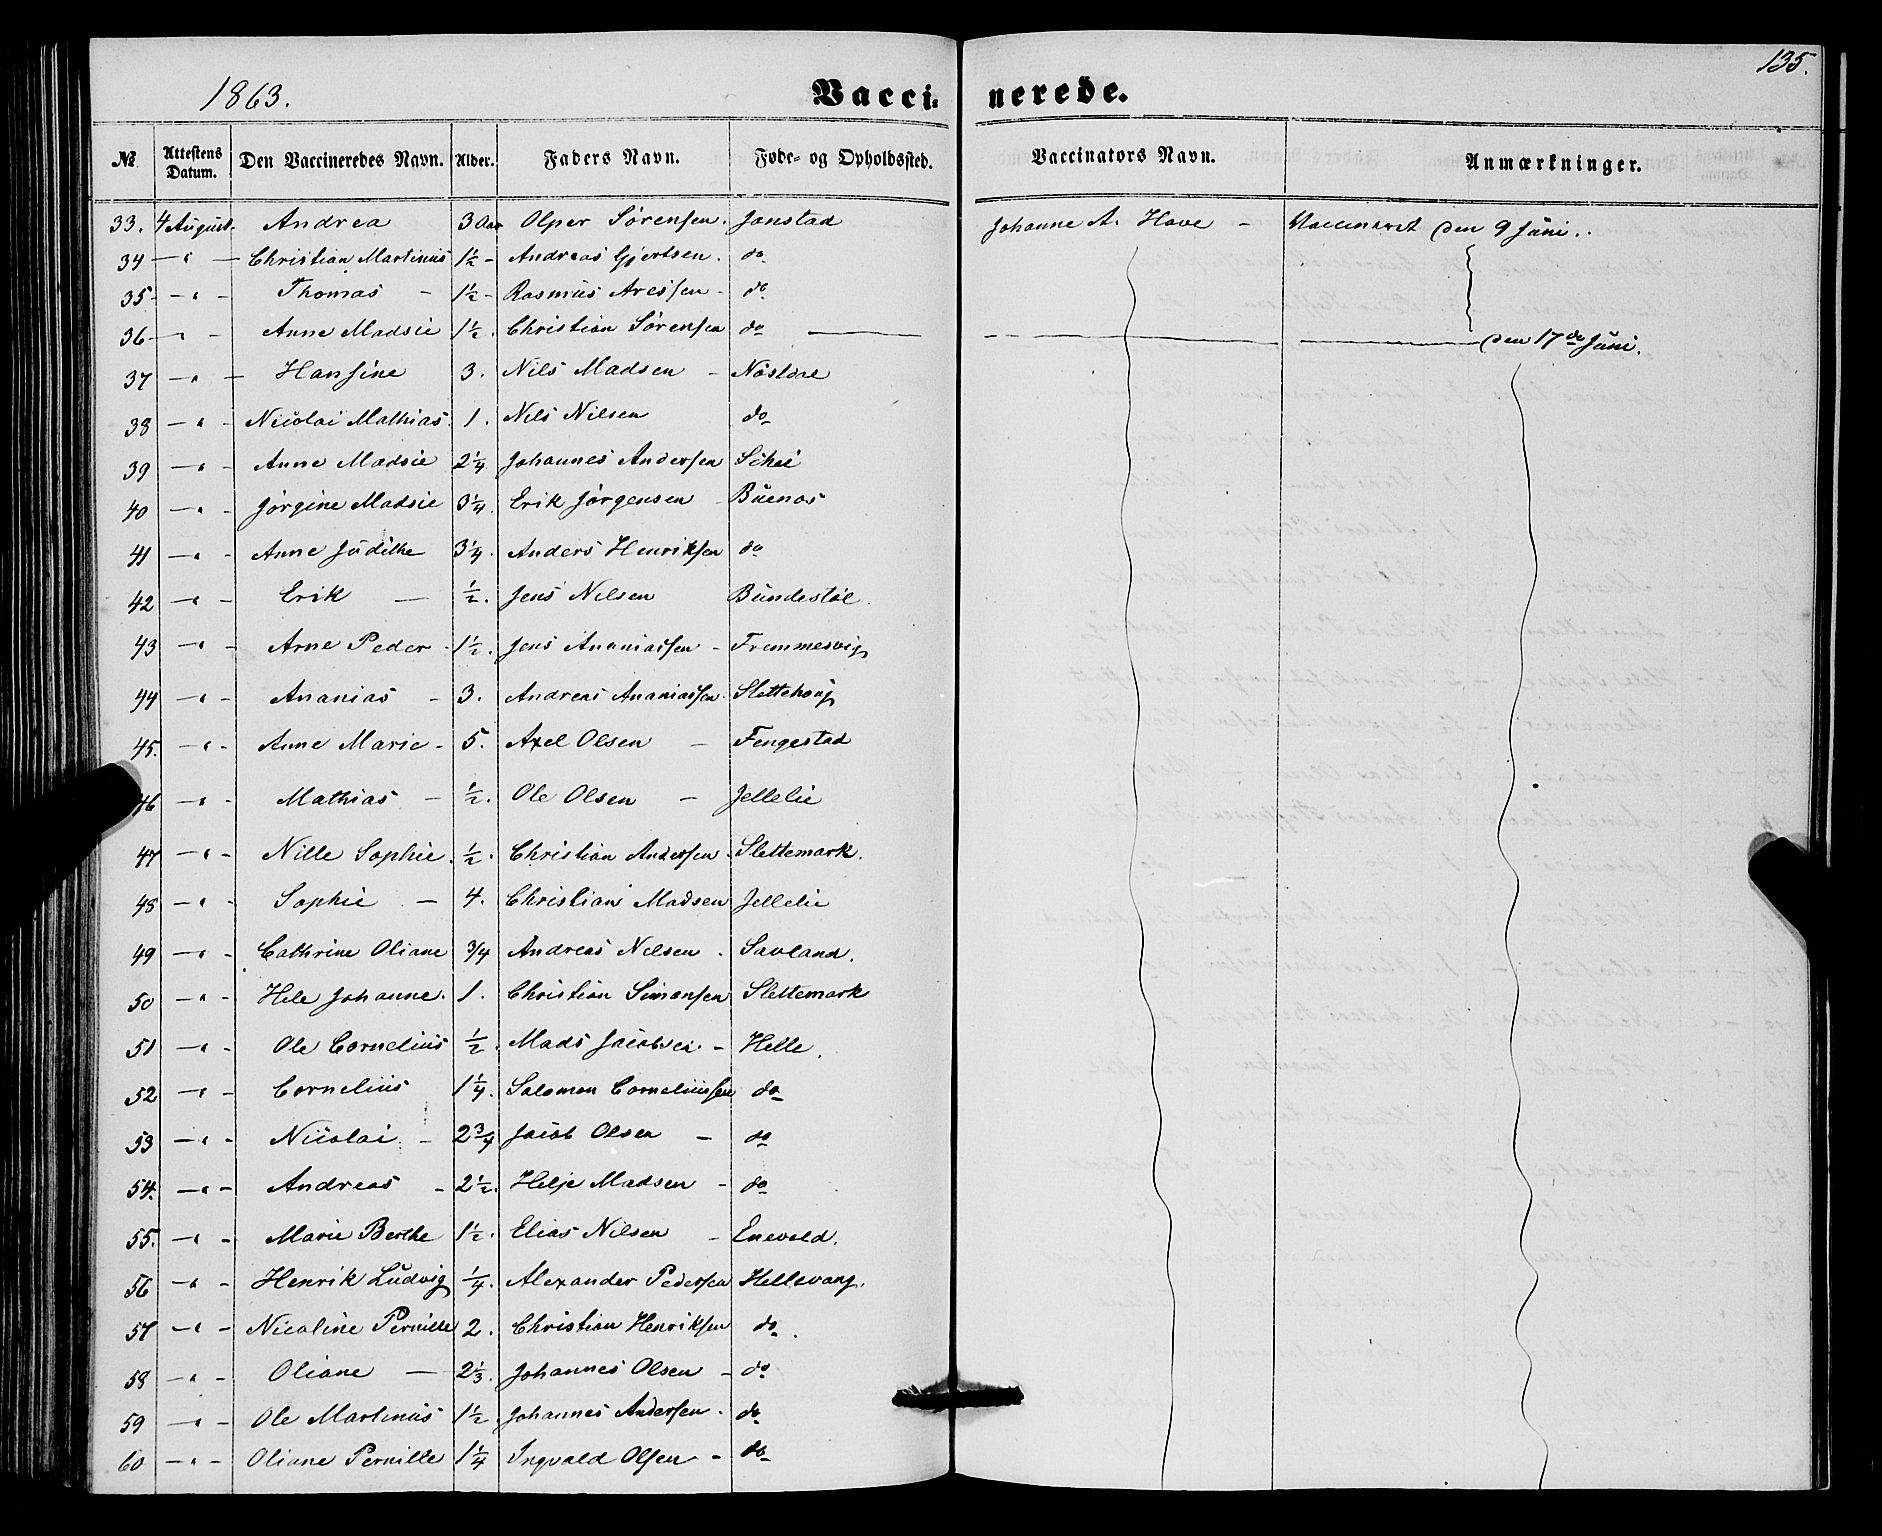 1863.
Vaccinerede.
135.
№ Attestens Datum. Den Vaccineredes Navn. Alder. Faders Navn. Føde- og Opholdssted. Vaccinators Navn. Anmærkninger.
33. 4 August. Andrea 3 Aar Olper Sørensen. Jonstad Johanne A. Hove - Vaccineret den 9 Juni.
34 — " — Christian Martinus 1½ - Andreas Gjertsen. do
35 - — " - Thomas - 1½ - Rasmus Aresen - do
36 — " - Anne Madsie 1½. Christian Sørensen do — den 17de Juni.
37 — " — Hansine 3. Nils Madsen - Nøstdal
38 — " - Nicolai Mathias 1. Nils Nilsen do
39 — " - Anne Madsie 2¼ Johannes Andersen Schei
40 — " - Jørgine Madsie 3¼ Erik Jørgensen - Buenos
41 — " - Anne Judithe 3¼ Anders Henriksen do
42 — " - Erik — ½. Jens Nilsen Bundestøl.
43 — " - Arne Peder - 1½. Jens Ananiassen - Fremmesvig
44 — " - Ananias - 3. Andreas Ananiassen. Slettehoug
45. — " - Anne Marie - 5. Axel Olsen — Fengestad
46 — " - Mathias - ½. Ole Olsen — Jellelie
47 — " - Nille Sophie. ½. Christian Andersen. Slettemark.
48 — " - Sophie — 4. Christian Madsen Jellelie
49 — " - Cathrine Oliane ¾ Andreas Nilsen. Savland.
50 — " - Hele Johanne. 1. Christian Simonsen Slettemark
51 — " - Ole Cornelius ½. Mads Jacobsen - Helle.
52 — " - Cornelius 1¼. Salomon Corneliussen do
53 — " - Nicolai - 2¾ Jacob Olsen — do
54. — " - Andreas - 2½. Helje Madsen - do
55. — " - Marie Berthe 1½. Elias Nilsen - Enevold.
56 — " - Henrik Ludvig ¼. Alexander Pedersen Hellevang.
57 — " - Nicoline Pernille 2. Christian Henriksen do.
58 — " - Oliane — 2⅓. Johannes Olsen - do
59 — " - Ole Martinus 1½. Johannes Andersen. do
60 — " - Oliane Pernille 1¼ Ingvald Olsen - do